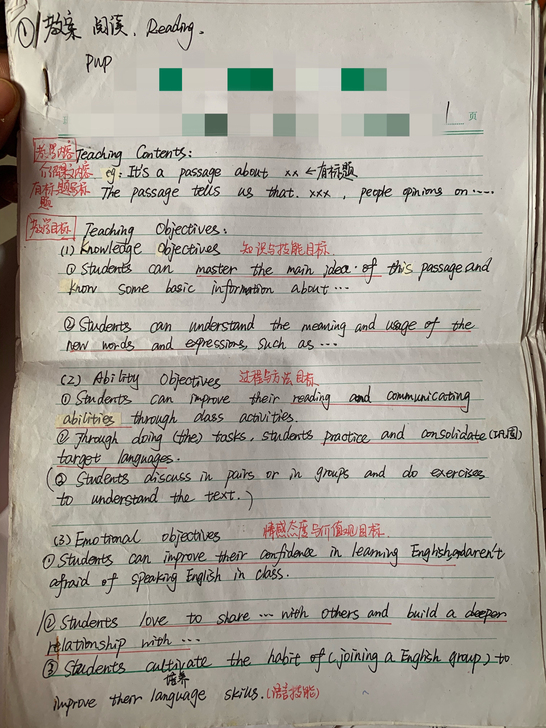 ① 教案 阅读. Reading.
PWP
1 页
教学内容 Teaching Contents:
介绍课文内容 eg: It's a passage about xx ←有标题
有标题写标题 The passage tells us that. xxx, people opinions on ……
教学目标 Teaching Objectives:
(1) Knowledge Objectives 知识与技能目标.
① Students can master the main idea of this passage and
know some basic information about …
② Students can understand the meaning and usage of the
new words and expressions, such as …
(2) Ability Objectives 过程与方法目标
① Students can improve their reading and communicating
abilities through class activities.
② Through doing (the) tasks, students practice and consolidate (巩固)
target languages.
(③ Students discuss in pairs or in groups and do exercises
to understand the text.)
(3) Emotional objectives 情感态度与价值观目标.
① Students can improve their confidence in learning English, and aren't
afraid of speaking English in class.
② Students love to share … with others and build a deeper
relationship with …
③ Students cultivate the habit of (joining a English group) to
培养
improve their language skills. (语言技能)